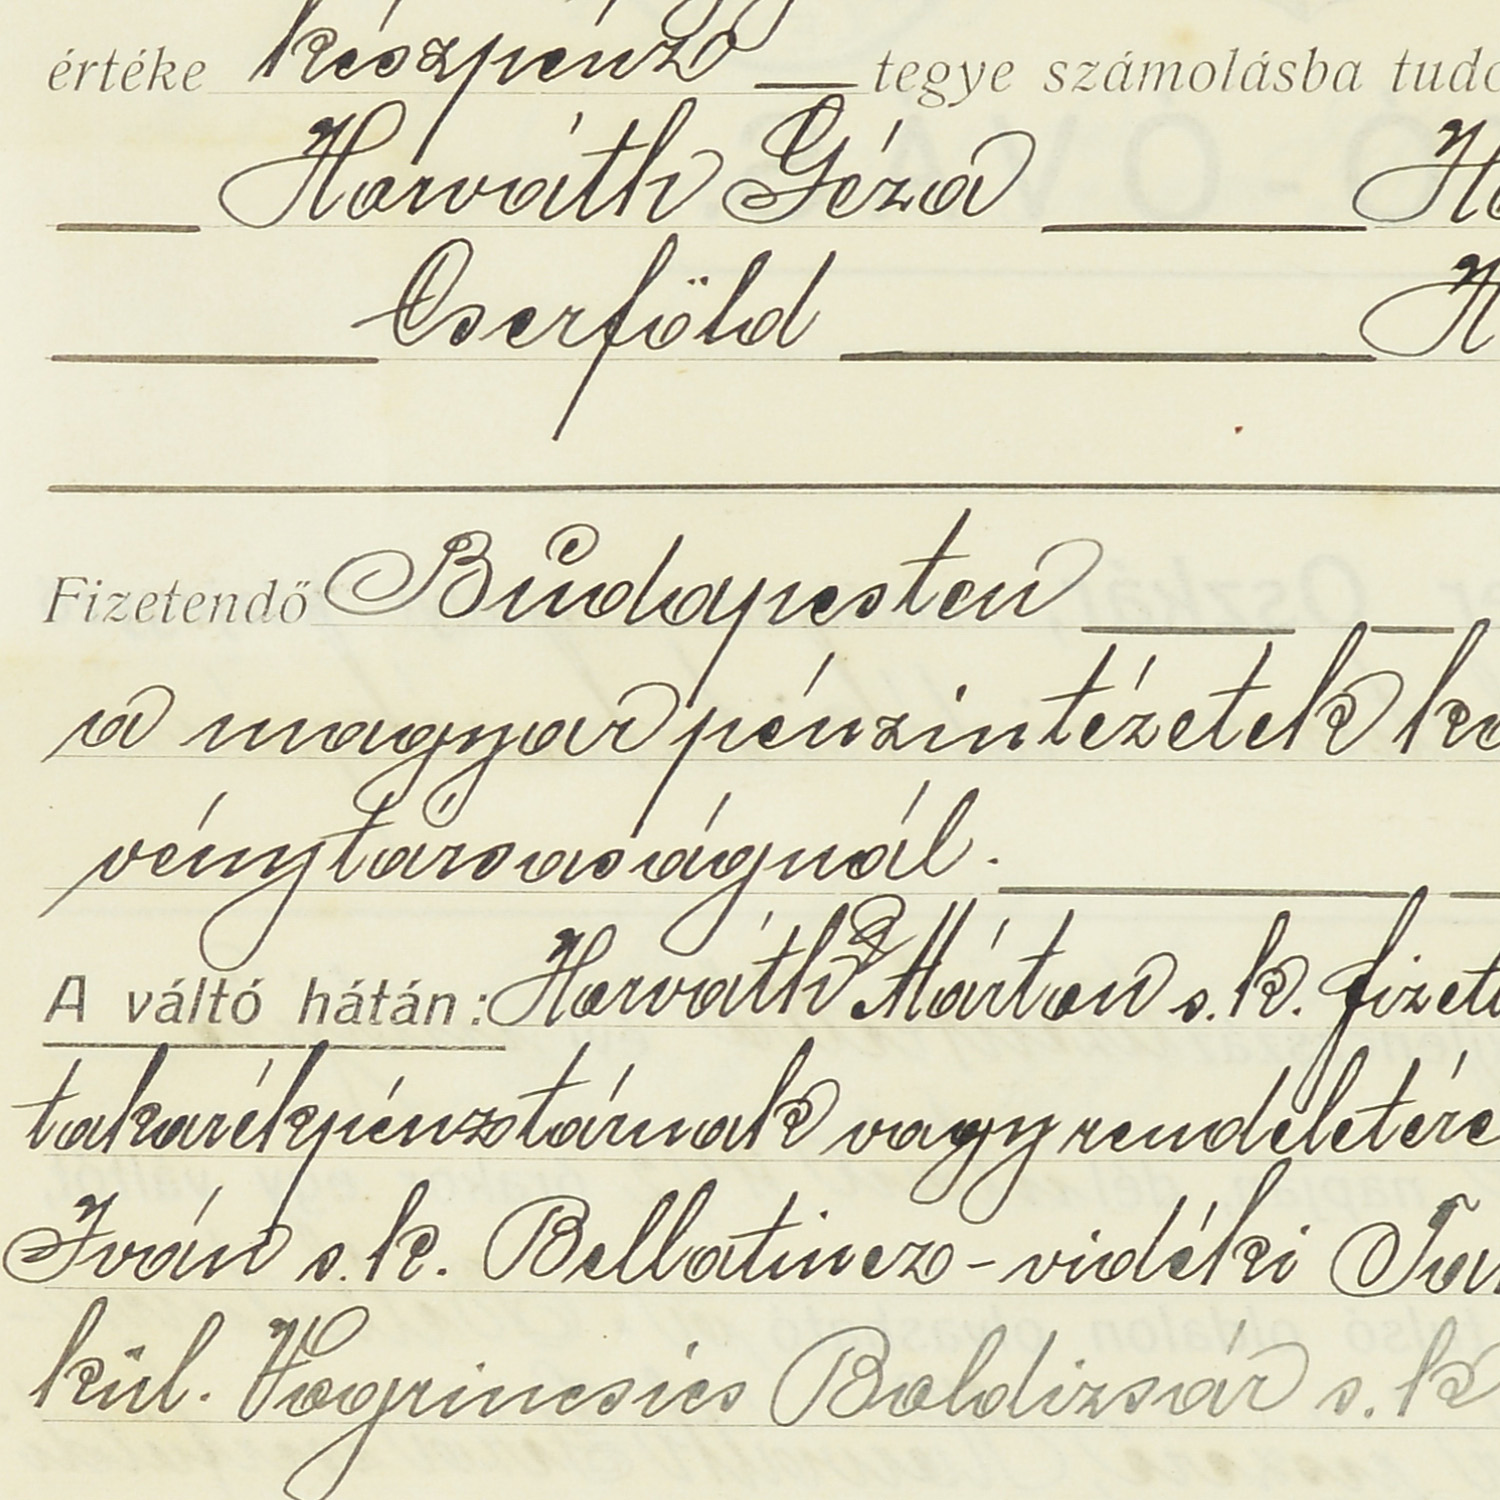 értéke készpénz — tegye számolásba tudo
Horváth Géza Ho
Cserföld H
Fizetendő Budapesten
a magyar pénzintézetek ko
vénytársaságnál.
A váltó hátán: Horváth Márton s.k. fizet
takarékpénztárnak vagy rendeletére
Iván s.k. Bellatincz-vidéki Tak
kül. Vogrincsics Boldizsár s.k